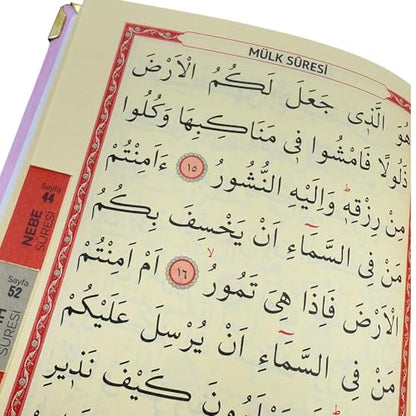 MÜLK SÛRESİ
هُوَ الَّذ۪ى جَعَلَ لَكُمُ الْاَرْضَ
ذَلُولًا فَامْشُوا ف۪ى مَنَاكِبِهَا وَكُلُوا
مِنْ رِزْقِه۪ وَاِلَيْهِ النُّشُورُ ١٥ ءَاَمِنْتُمْ
مَنْ فِى السَّمَٓاءِ اَنْ يَخْسِفَ بِكُمُ
الْاَرْضَ فَاِذَا هِىَ تَمُورُ ١٦ اَمْ اَمِنْتُمْ
مَنْ فِى السَّمَٓاءِ اَنْ يُرْسِلَ عَلَيْكُمْ
كَيْفَ نَذ۪يرِ
Sayfa
44
NEBE
SÛRESİ
Sayfa
52
SÛRESİ